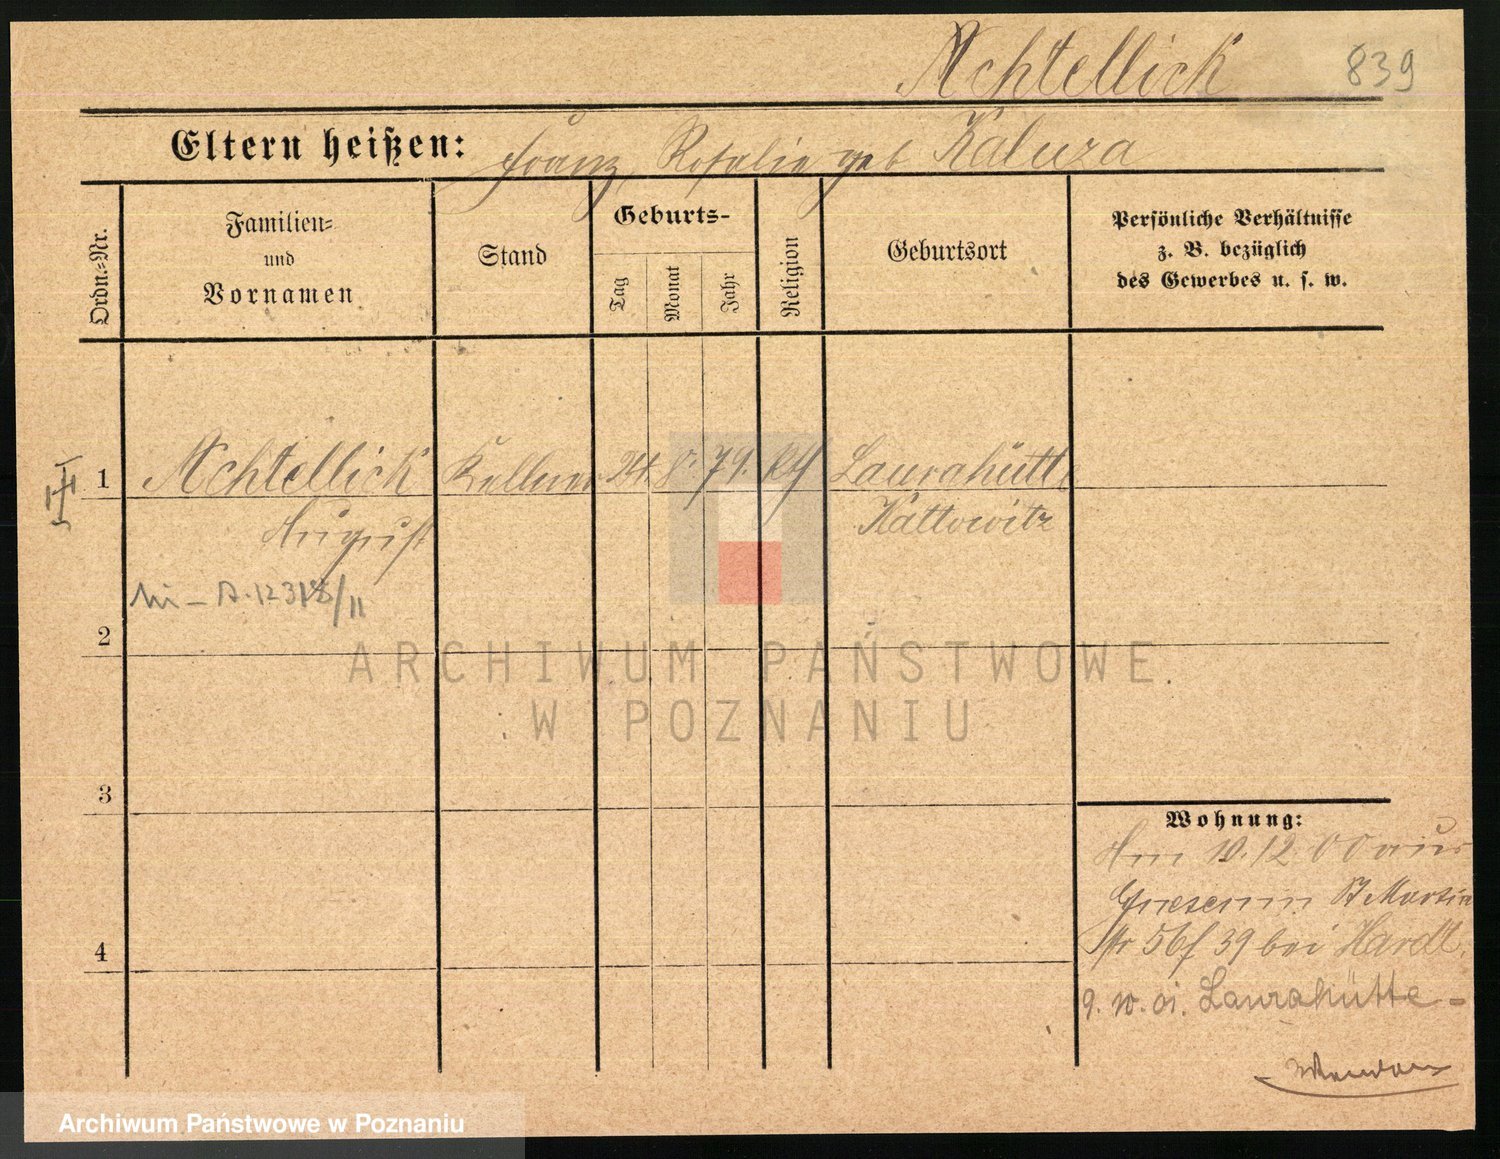 Achtellick 839
Eltern heißen: Franz, Rosalie geb Kaluza
Ordn.=Nr.
Familien=
und
Vornamen
Stand
Geburts-
Tag
Monat
Jahr
Religion
Geburtsort
Persönliche Verhältnisse
z. B. bezüglich
des Gewerbes u. s. w.
1 Achtellick Kellner 24. 8. 79. kth Laurahütte
August Kattowitz
2
3
4
Wohnung:
Am 10.12.00 aus
Gnesen in St Martin
str 56 f 39 bei Hardt.
9. 10. 01. Laurahütte -
Wenden
ARCHIWUM PAŃSTWOWE
W POZNANIU
Archiwum Państwowe w Poznaniu